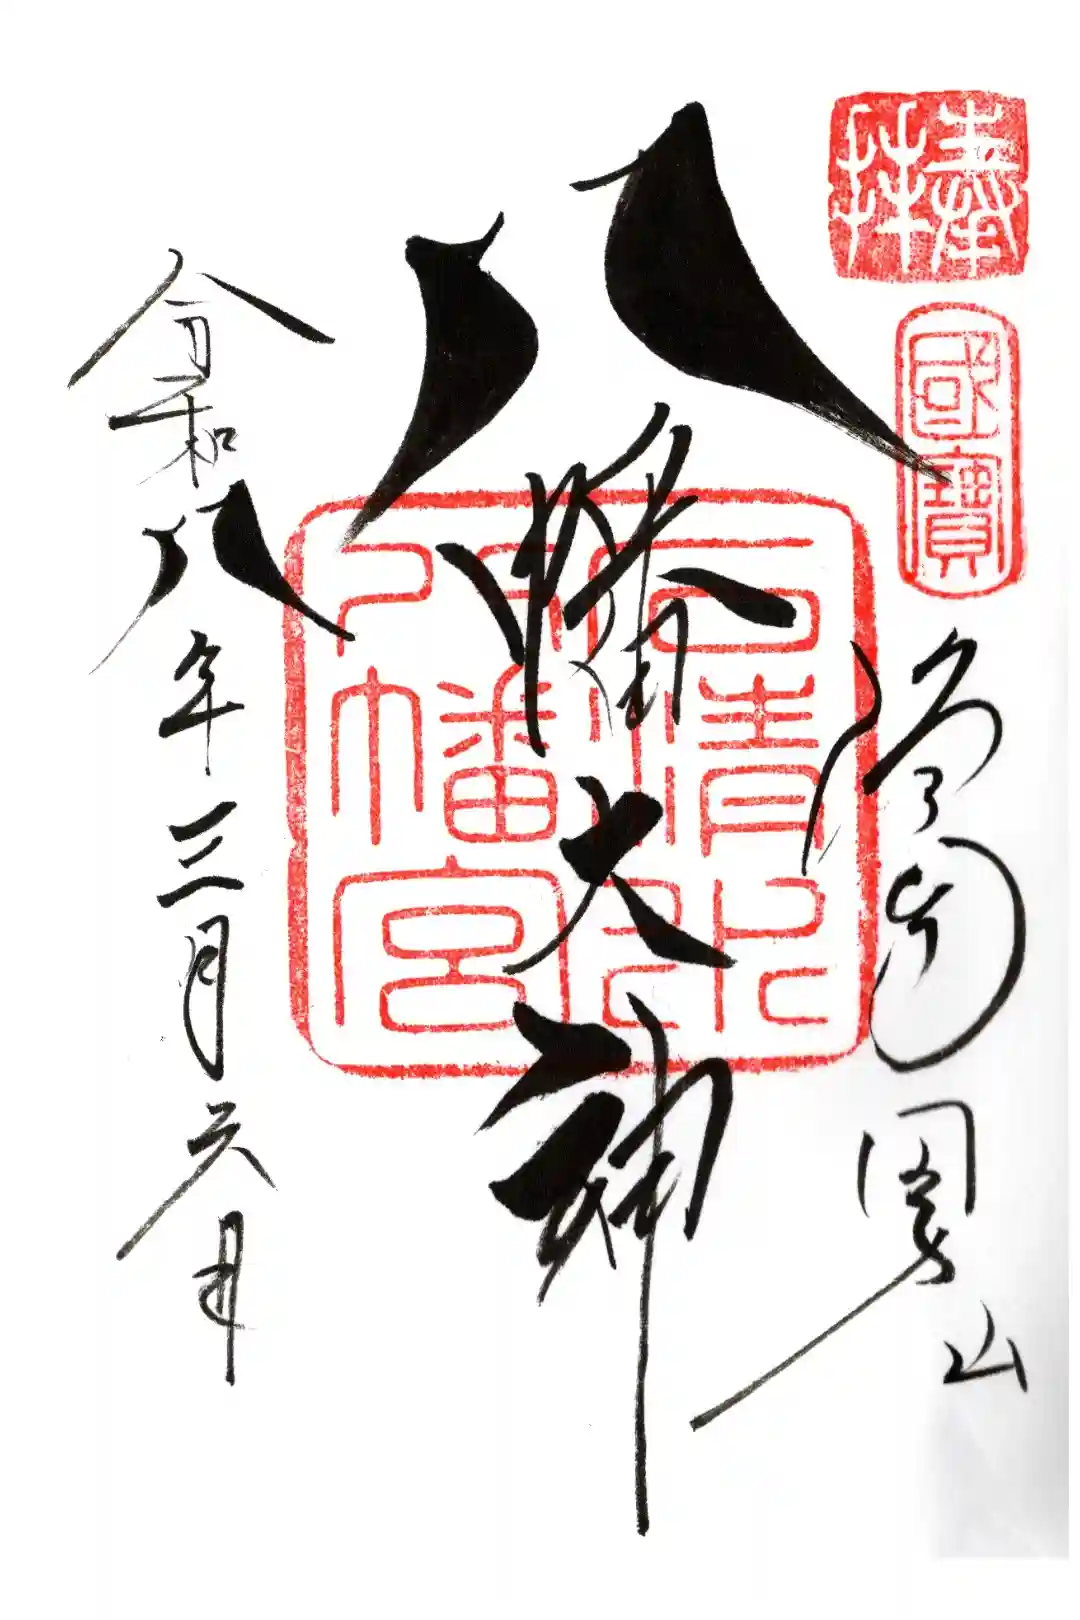 奉拝
國寶
山
八幡大神
石清水八幡宮印
令和八年三月六日